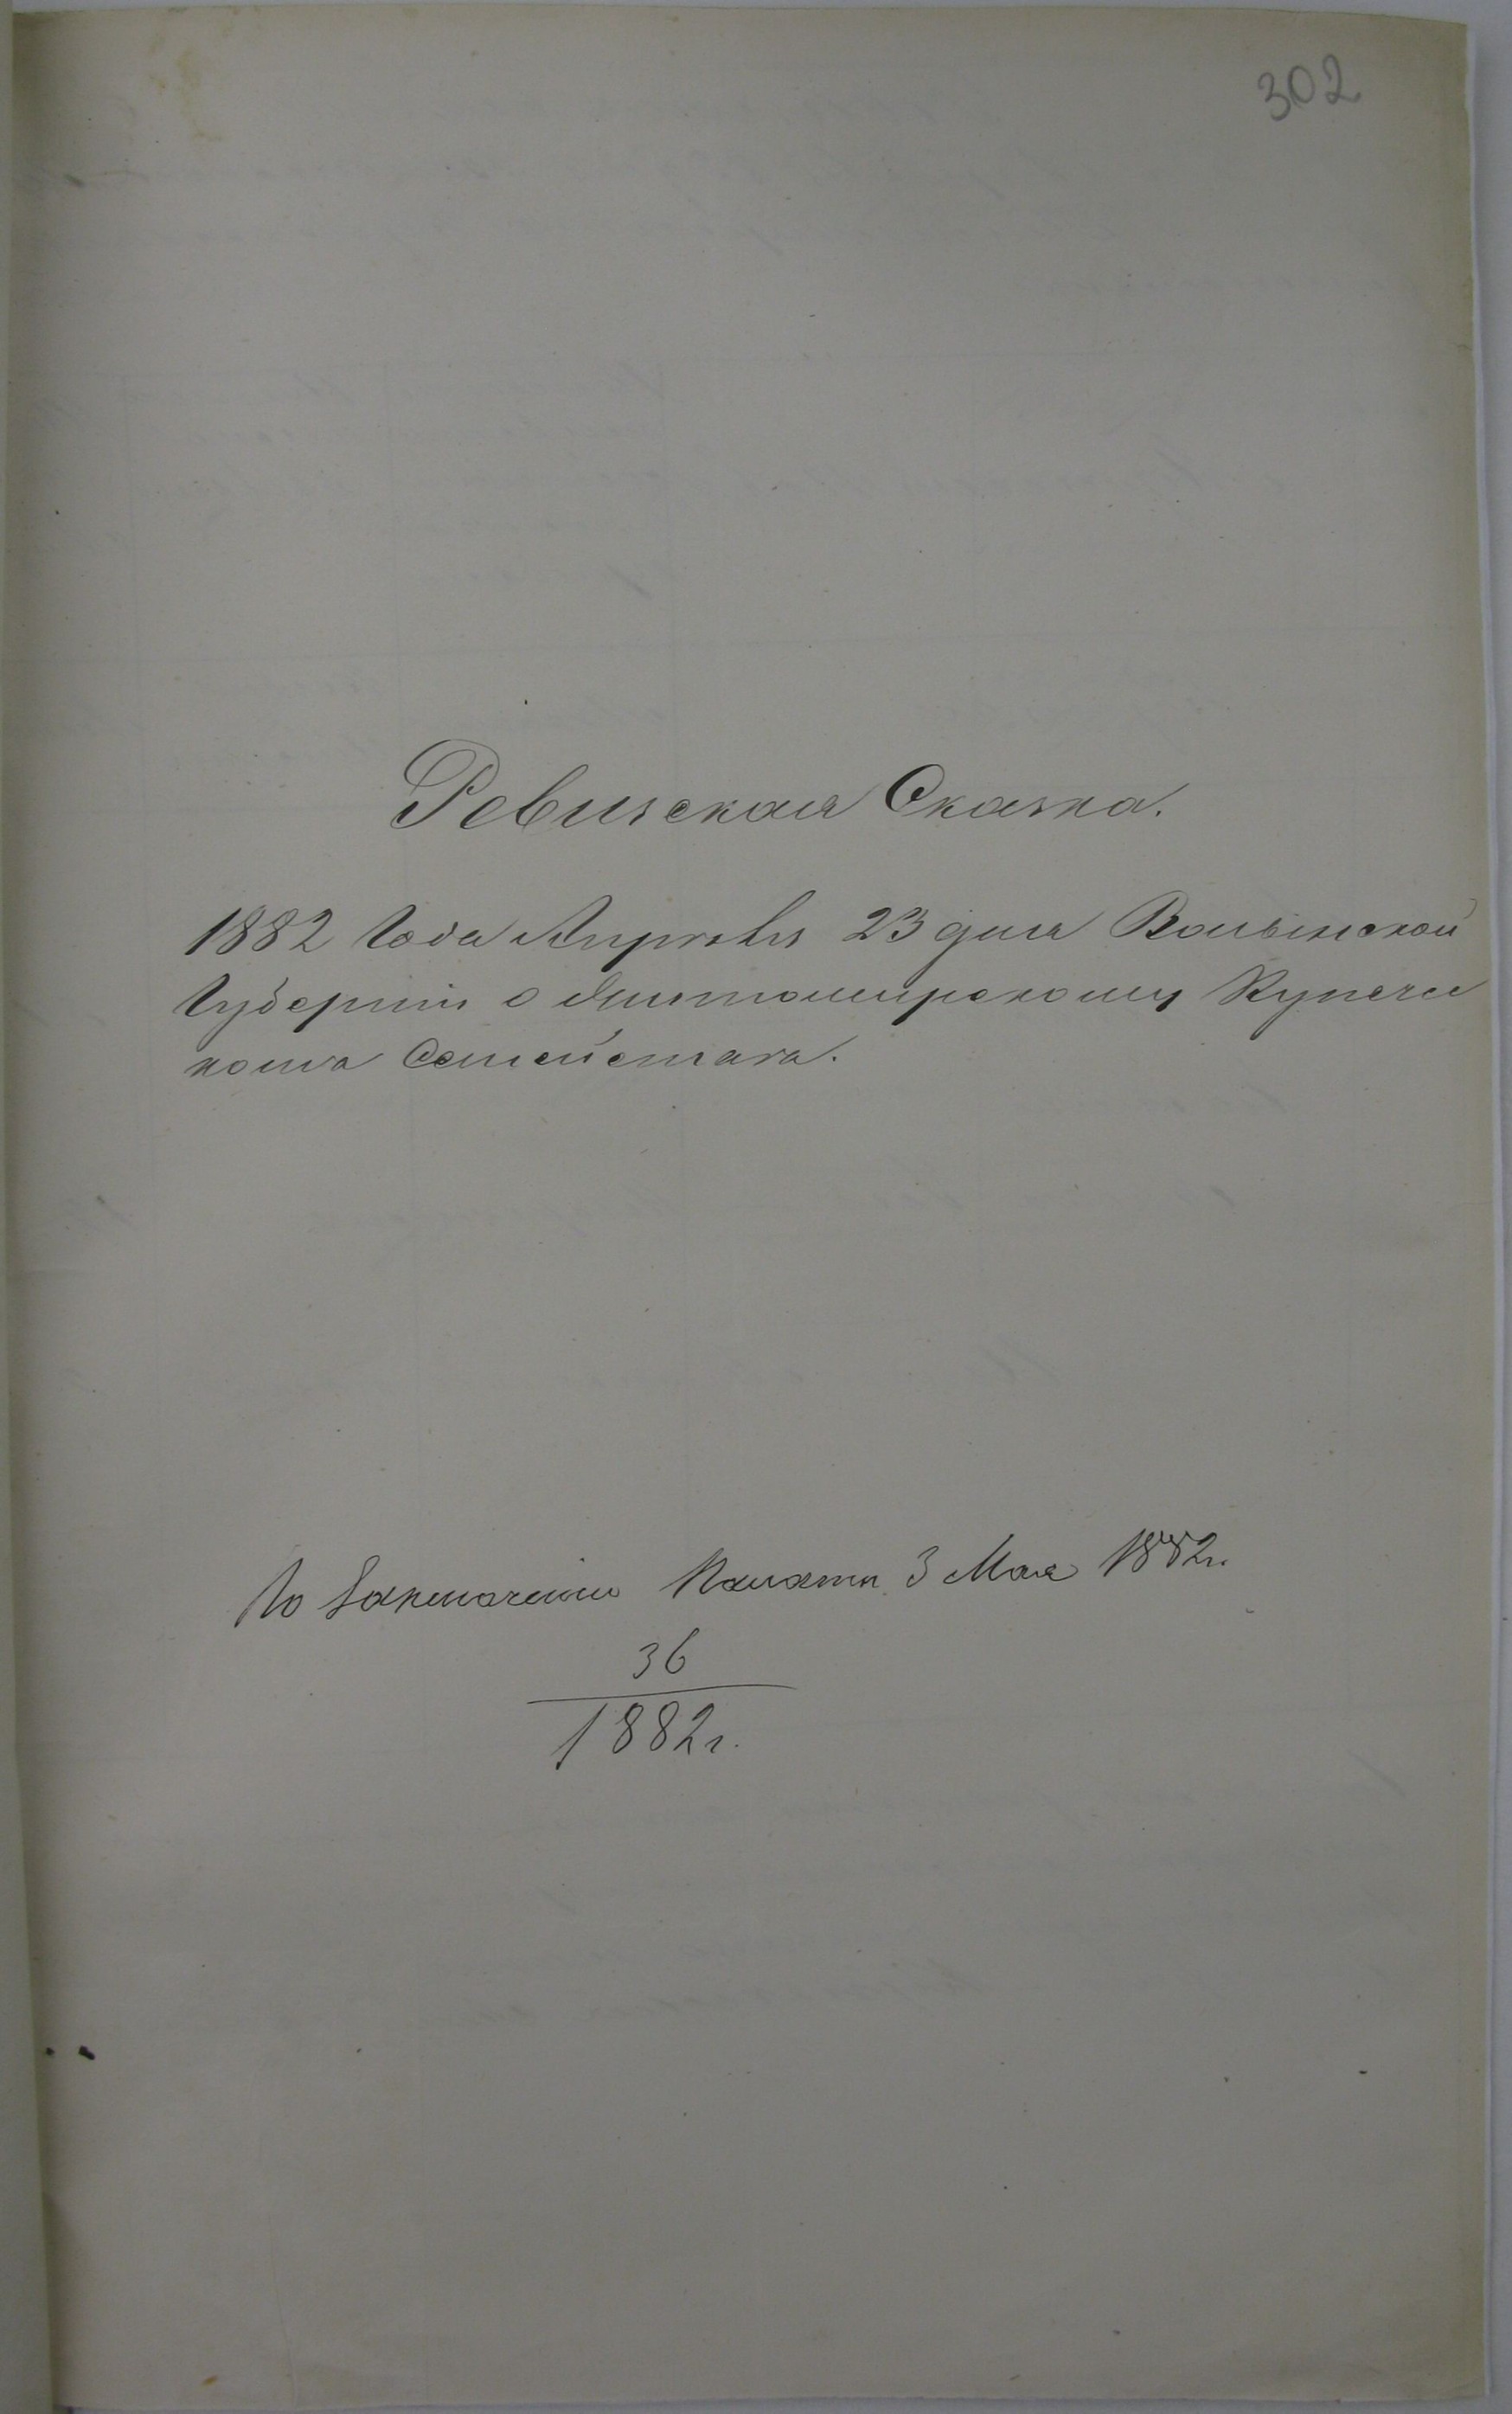 302
Ревизская Сказка.
1882 Года Апреля 23 дня Волынской
Губернии о Житомирскому Купече
кома Семейства.
По Заключению Палаты 3 Мая 1882 г.
36
1882 г.